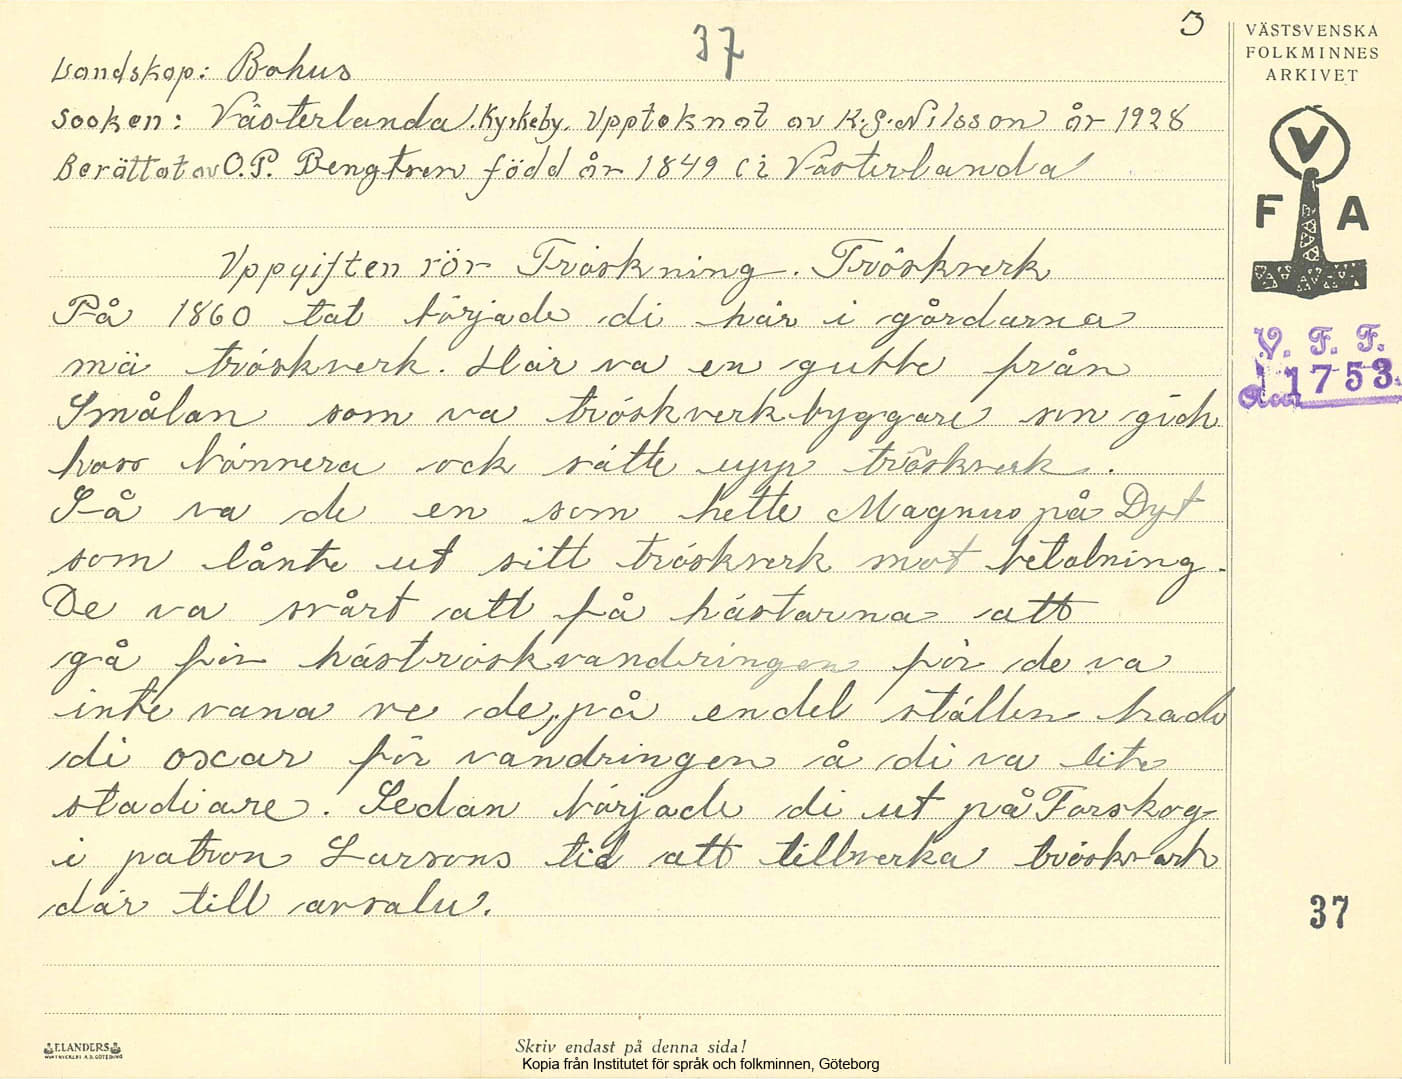 3
37
VÄSTSVENSKA
FOLKMINNES
ARKIVET
Landskap: Bohus
Socken: Västerlanda. Kyrkeby. Upptecknat av K.G. Nilsson år 1928
Berättat av O.P. Bengtsson född år 1849 i Västerlanda
V
F A
V. F. F.
Acc 1753.
Uppgiften rör Tröskning. Tröskverk
På 1860 tal började di här i gårdarna
mä tröskverk. Här va en gubbe från
Smålan som va tröskverkbyggare som gich
hoss bönnera ock satte upp tröskverk.
Så va de en som hette Magnus på Dyt
som lånte ut sitt tröskverk mot betalning.
De va svårt att få hästarna att
gå för hästtröskvandringen för de va
inte vana ve de, på endel ställen hade
di oxar för vandringen å di va lite
stadiare. Sedan började di ut på Forskog
i patron Larsons tid att tillverka tröskverk
där till avsalu.
37
ELANDERS
Skriv endast på denna sida!
Kopia från Institutet för språk och folkminnen, Göteborg